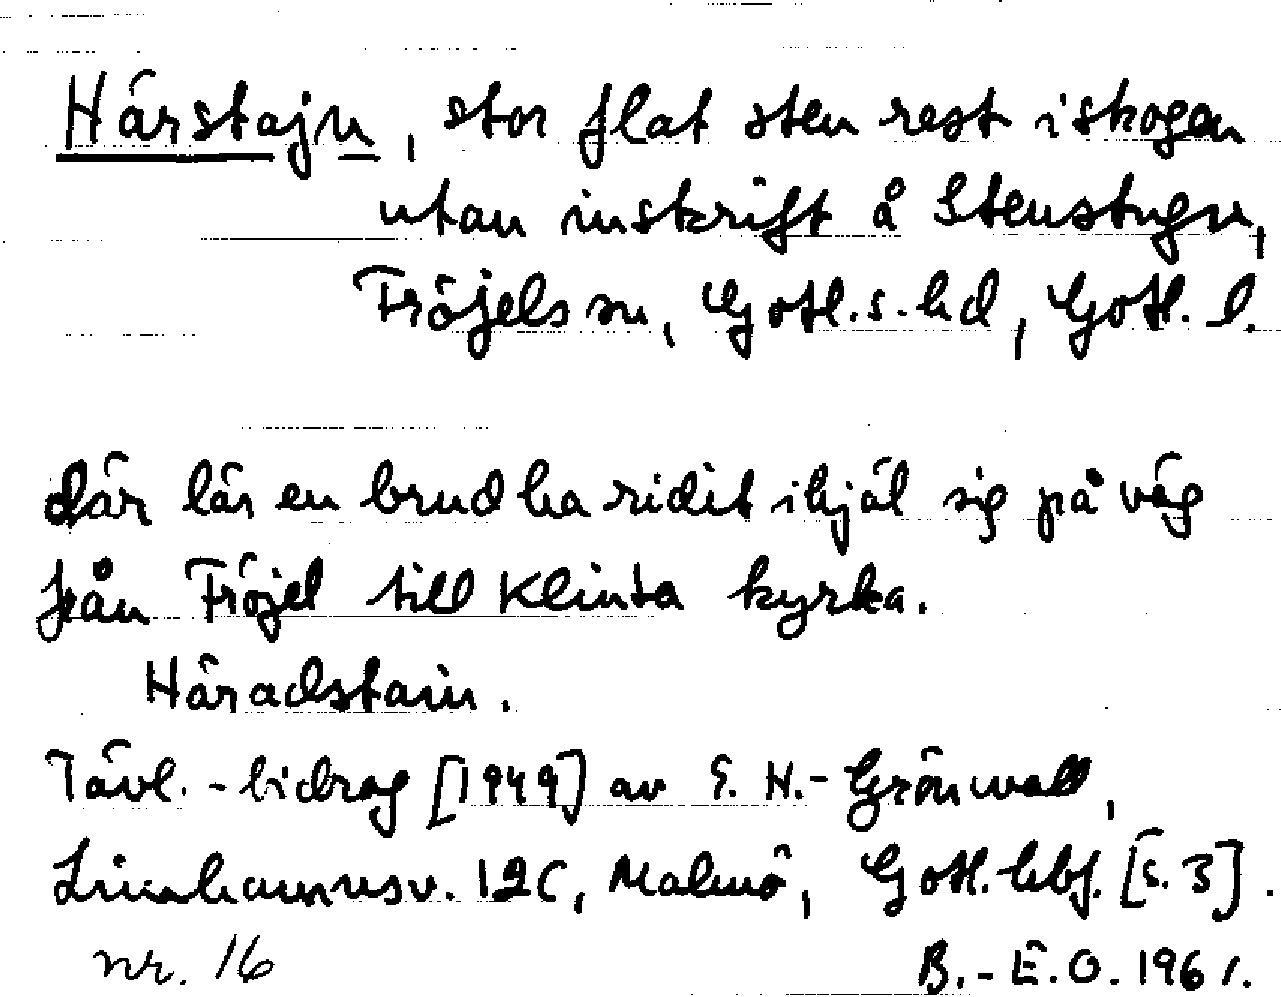 Härstajn, stor flat sten rest i skogen
utan inskrift å Stenstugu,
Fröjels sn, Gotl.s.hd, Gotl. l.
där lär en brud ha ridit ihjäl sig på väg
från Fröjel till Klinta kyrka.
Häradstain.
Tävl.-bidrag [1949] av E. H.-Grönwall,
Limhamnsv. 12C, Malmö, Gotl. hbf. [s. 3].
nr. 16
B.-E.O. 1961.